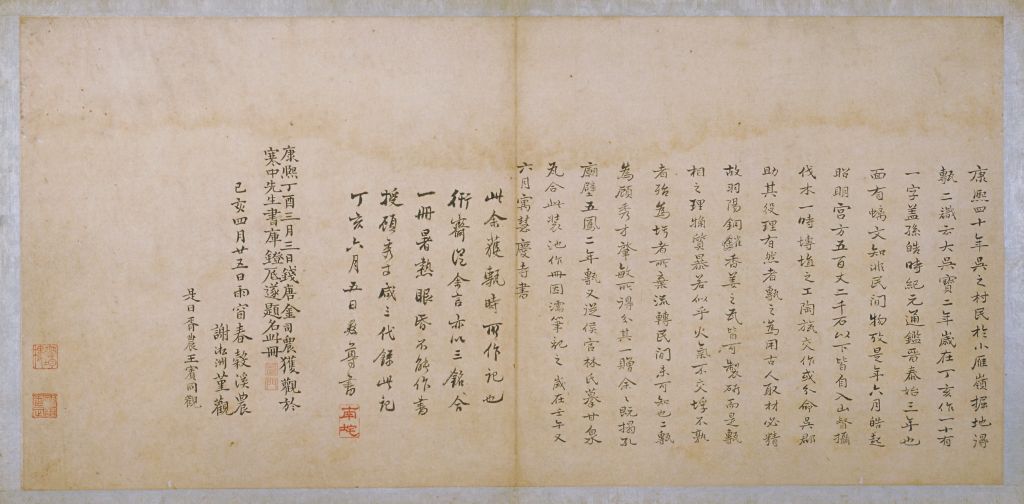 康熙四十年吳之村民於小雁嶺掘地得
甎二識云大吳寶二年歲在丁亥作一十有
一字蓋孫皓時紀元通鑑晉泰始三年也
面有螭文知非民間物攷是年六月皓起
昭明宮方五百丈二千石以下皆自入山督攝
伐木一時摶埴之工陶旊交作或分命吳郡
助其役理有然者甎之為用古人取材必精
故羽陽銅雀香姜之瓦皆可製硏而是甎
相之理猶薜暴若似乎火氣不交埏不孰
者殆為圬者所棄流轉民間未可知也二甎
為顧秀才肇敏所得分其一贈余余既搨孔
廟壁五鳳二年甎又從侯官林氏摹甘泉
瓦合此裝池作冊因濡筆記之歲在壬午又
六月寓慧慶寺書
此余獲甎時所作記也
衎齋從舍言亦以三銘合
一冊暑熱眼昏不能作書
授碩秀才咸三代錄此記
丁亥六月五日彝尊書
南垞
康熙丁酉三月三日錢唐金司農獲觀於
寒中先生書庫鐙底遂題名此冊
己亥四月廿五日雨窗春穀溪農
謝淞洲菫觀
是日胥農王賓同觀